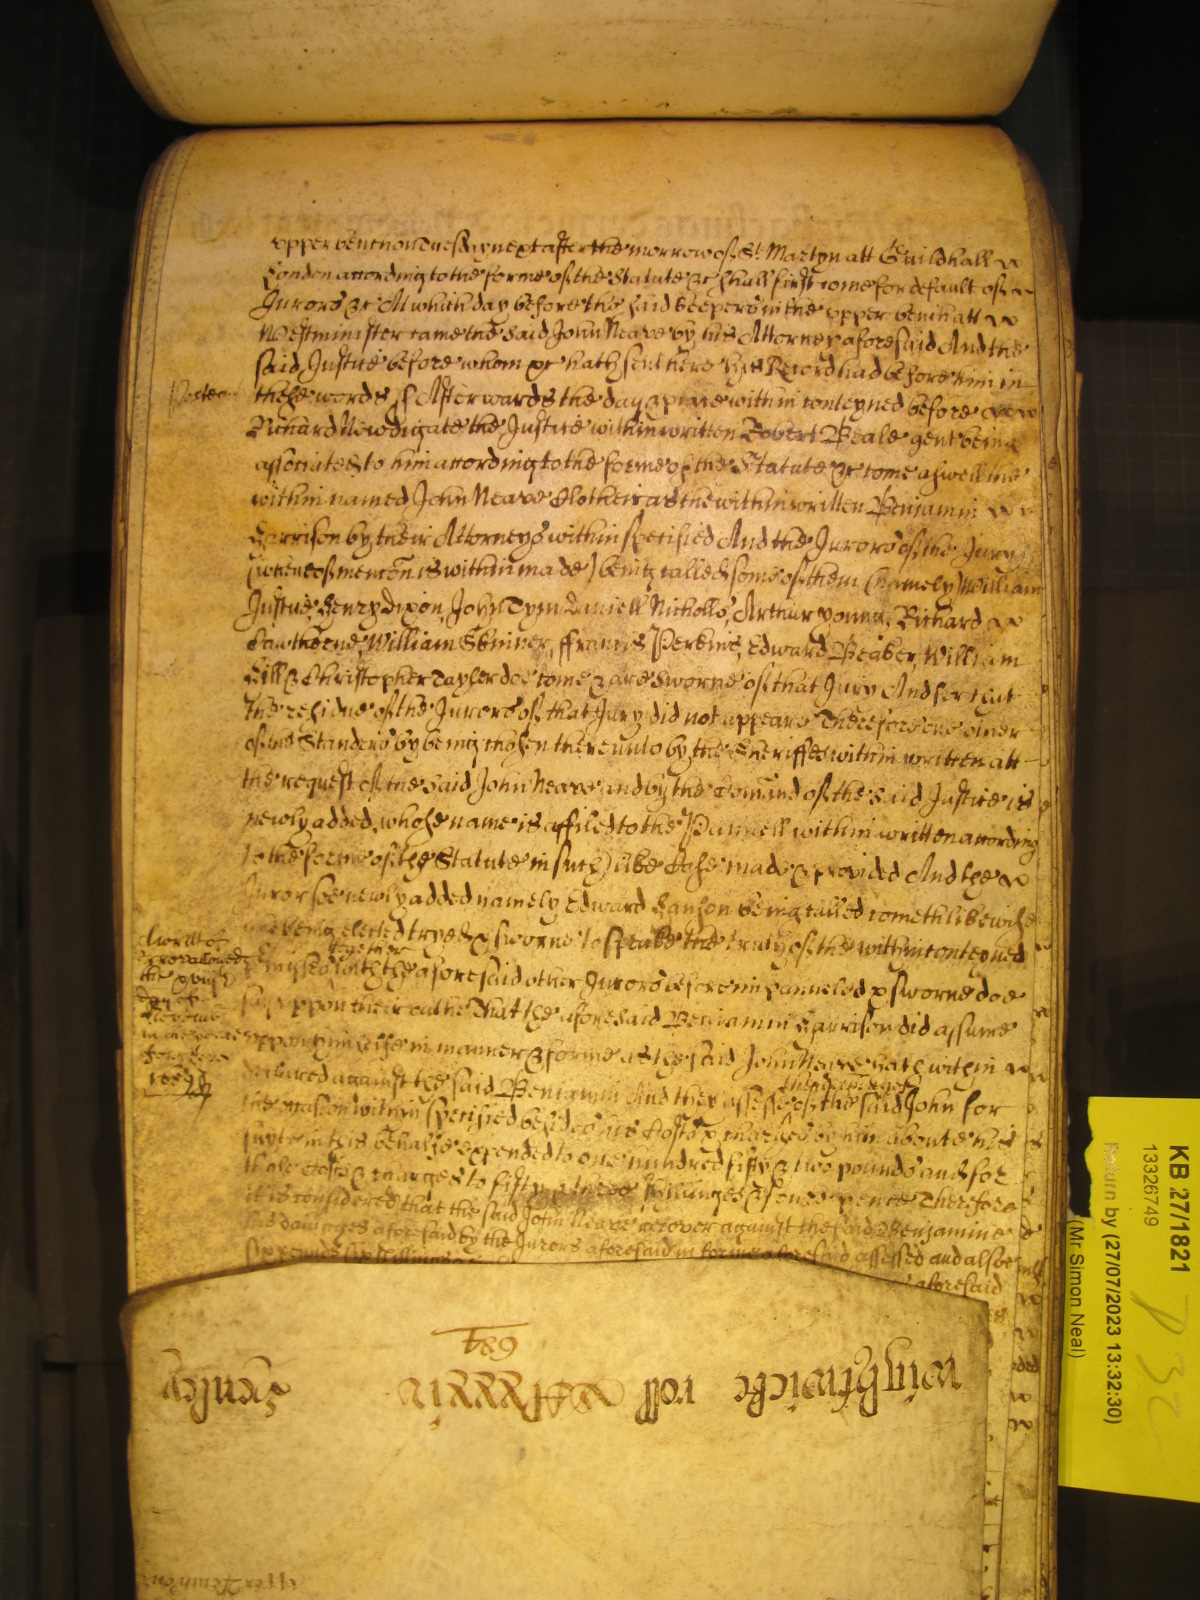 upper bench on Tuesday next after the morrow of St Martyn att Guildhall
London according to the forme of the Statute &c shall first come for default of
Jurors &c At which day before the said keepers in the upper bench att
Westminister came the said John Neave by his Attorney aforesaid And the
said Justice before whom &c hath sent here his Record had before him in
Postea
these words ss Afterwards the day & place within conteyned before
Richard Newdigate the Justice within written Robert Beale gent being
associated to him according to the forme of the Statute &c come aswell the
within named John Neave Clothier as the within written Benjamin
Harrison by their Attorneys within specified And the Jurors of the Jury
(whereof mencon is within made) being called some of them (namely) William
Justice, Henry Dixon, John Tym Daniell Nicholls, Arthur young, Richard
Hawthorne, William Skinner, ffrancis Perkins, Edward Beaker, William
Hill & Christopher Tayler doe come & are sworne of that Jury And for that
the residue of the Jurors of that Jury did not appeare Therefore one other
of the Standers by being chosen thereunto by the Sheriffes within written att
the request of the said John Neave and by the Comand of the said Justice is
newly added, whose name is affiled to the Pannell within written according
to the forme of the Statute in such like Case made & provided And the
Juror soe newly added namely Edward Hanson being called cometh likewise
being elected tryed & sworne to speake the truth of the within conteyned
together
with the aforesaid other Jurors before impanneled & sworne doe
say uppon their oathe That the aforesaid Benjamin Harrison did assume
A writt of
error allowed
the xviijth
day of
in the yeare
1659
uppon himselfe in manner & forme as the said John Neave hath within
declared against the said Benjamin And they assesse the damages of the said John for
the occasion within specified besides his Costs & charges by him about his
suyte in this behalfe expended to one hundred fifty & two pounds and for
those costs & charges to fifty & three shillinges & foure pence Therefore
it is considered that the said John Neave recover against the said Benjamine
his damages aforesaid by the Jurors aforesaid in forme aforesaid assessed and alsoe
aforesaid
684
wingfwicke roll
Henley
upper Bench
KB 27/1821
13326749
Return by (27/07/2023 13:32:30)
(Mr Simon Neal)